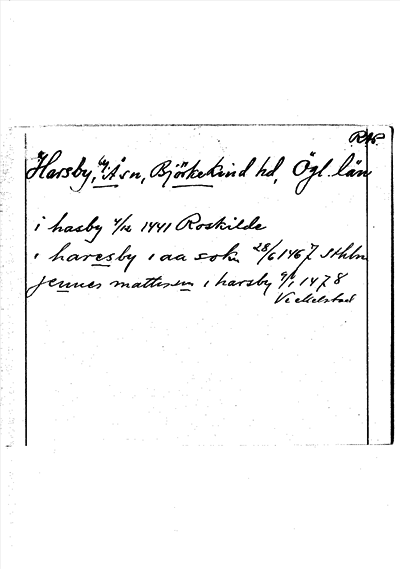 RAp.
Harsby, Å sn, Björkekind hd, Ögl. län
i hasby 4/12 1441 Roskilde
i haresby i aa sokn 28/6 1467 Sthlm
jennes mattisen i harsby 9/1 1478